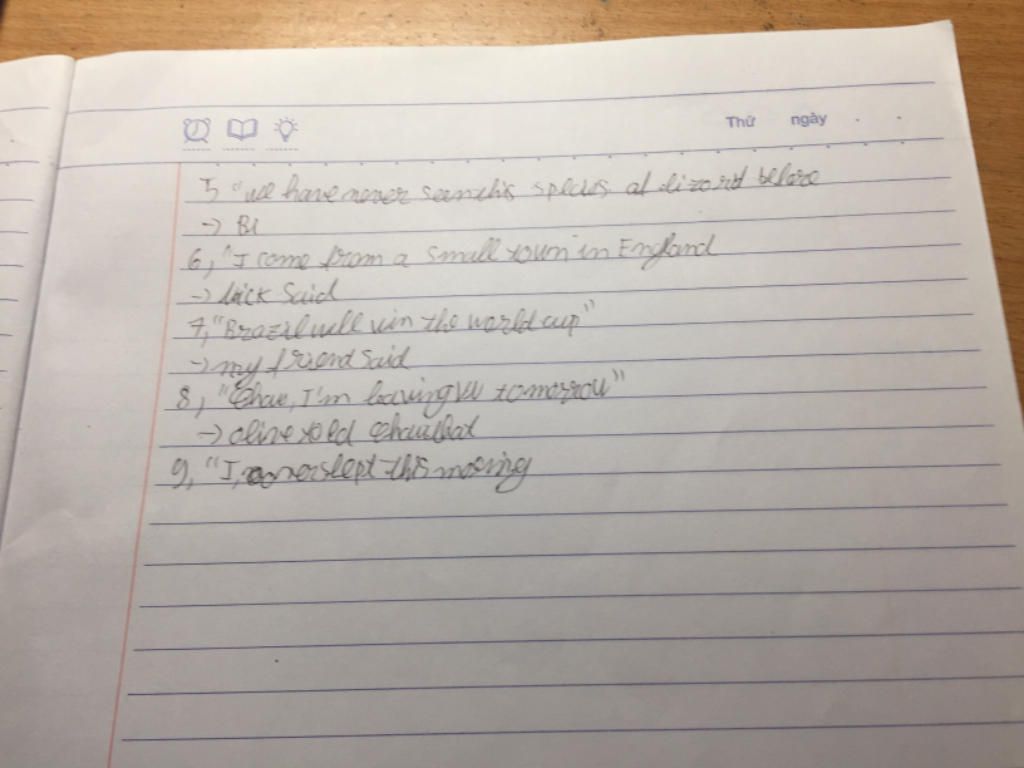 Thứ ngày
5 "we have never seen this species of lizard before
→ Bi
6, "I come from a small town in England
→ Mick said
7, "Brazil will win the world cup"
→ my friend said
8, "Chau, I'm leaving VN tomorrow"
→ olive told Chau that
9, "I, overslept this morning